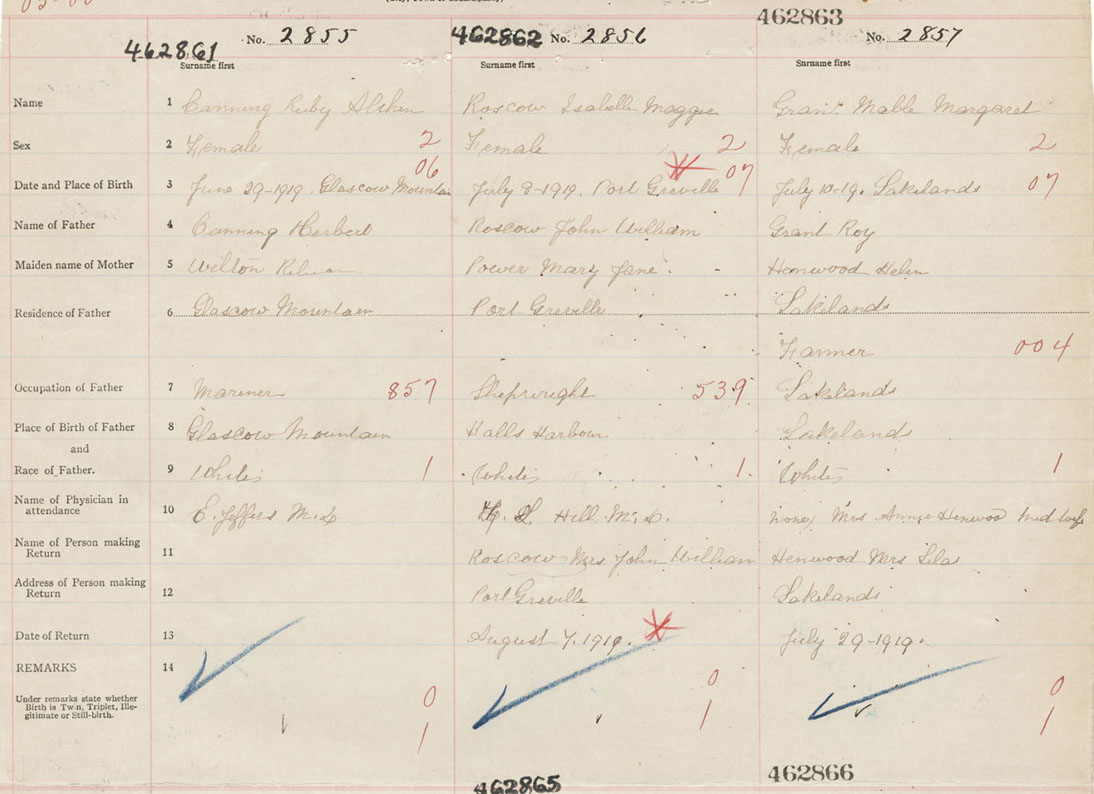 462863
462861 No. 2855 462862 No. 2856 No. 2857
Surname first Surname first Surname first
Name 1 Canning Ruby Roscow Isabelle Maggie Mable Margaret
Sex 2 Female 2 Female 2 Female 2
06 07 07
Date and Place of Birth 3 June 29-1919. Glascow Mountain July 8-1919. Port Greville July 10-19. Lakelands
Name of Father 4 Canning Herbert Roscow John William Grant Roy
Maiden name of Mother 5 Welton Power Mary Jane. Henwood Helen
Residence of Father 6 Glascow Mountain Port Greville Lakelands
Farmer 004
Occupation of Father 7 Mariner 857 Shipwright 539 Lakelands
Place of Birth of Father 8 Glascow Mountain Halls Harbour Lakelands
and
Race of Father. 9 White 1 White 1. White 1
Name of Physician in
attendance 10 E. Jeffers M.D. Hill. M.D. none, Mrs Henwood midwife
Name of Person making
Return 11 Roscow Mrs John William Henwood Mrs
Address of Person making
Return 12 Port Greville Lakelands
Date of Return 13 August 7. 1919. July 29-1919.
REMARKS 14
Under remarks state whether
Birth is Twin, Triplet, Ille-
gitimate or Still-birth.
0 0 0
1 1 1
462865 462866